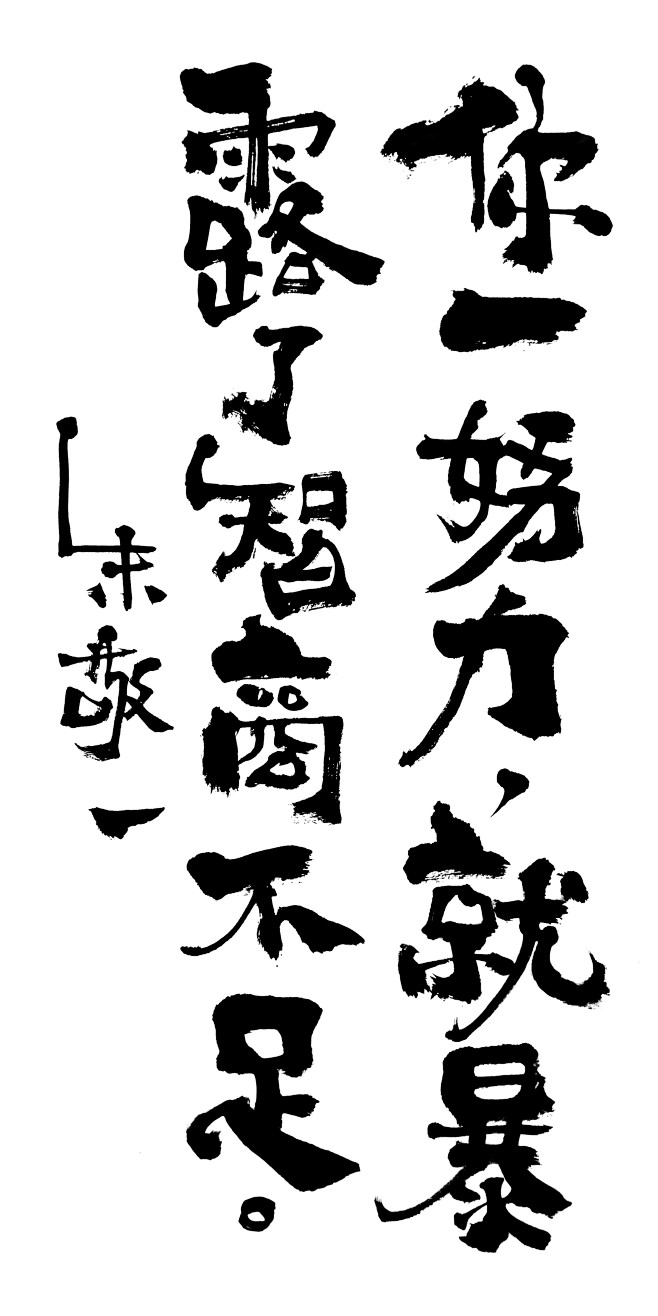 你一努力，就暴
露了智商不足。
朱敬一